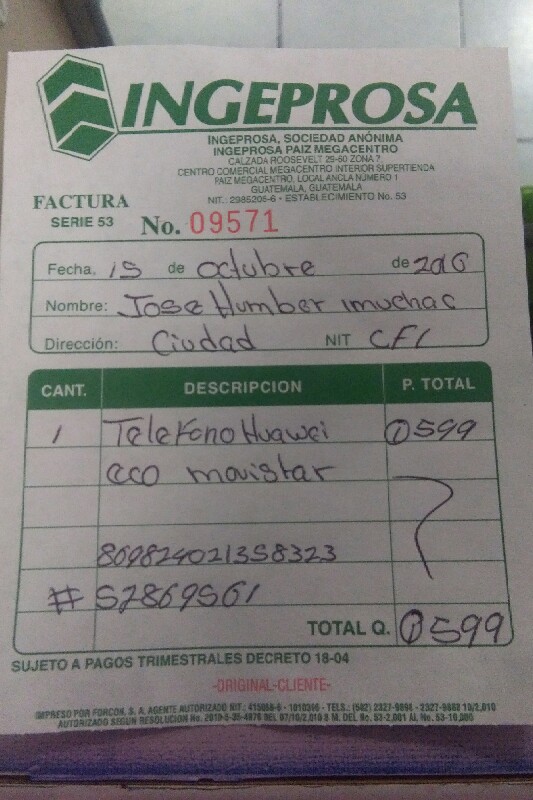 INGEPROSA
INGEPROSA, SOCIEDAD ANÓNIMA
INGEPROSA PAIZ MEGACENTRO
CALZADA ROOSEVELT 29-60 ZONA 7
CENTRO COMERCIAL MEGACENTRO INTERIOR SUPERTIENDA
PAIZ MEGACENTRO, LOCAL ANCLA NÚMERO 1
GUATEMALA, GUATEMALA
NIT.: 2985206-6 • ESTABLECIMIENTO No. 53
FACTURA
SERIE 53 No. 09571
Fecha, 15 de octubre de 2010
Nombre: Jose Humber imuchac
Dirección: Ciudad NIT CF1
CANT. DESCRIPCION P. TOTAL
1 Telefono Huawei Q599
eco movistar
869824021358323
# 52869561
TOTAL Q. Q599
SUJETO A PAGOS TRIMESTRALES DECRETO 18-04
-ORIGINAL-CLIENTE-
IMPRESO POR FORCON, S. A. AGENTE AUTORIZADO NIT.:
AUTORIZADO SEGUN RESOLUCION No.